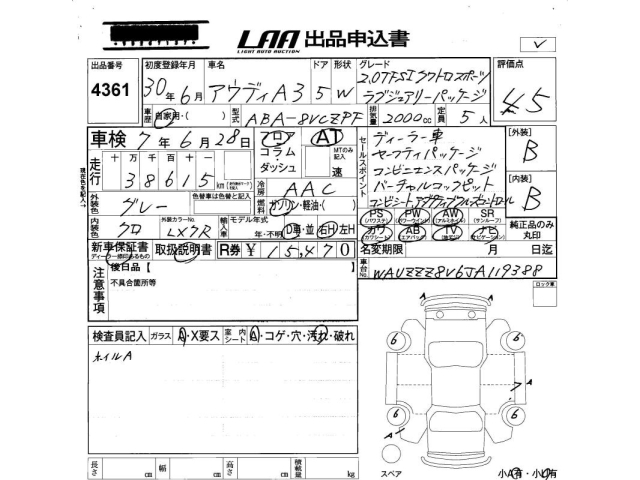 LAA 出品申込書
LIGHT AUTO AUCTION
出品番号 初度登録年月 車名 ドア 形状 グレード 評価点
4361 30年6月 アウディA3 5 W 2.0TFSIクワトロスポーツ
ラグジュアリーパッケージ
4.5
車歴 自家用・( ) 型式 ABA-8VCZPF 排気量 2000cc 定員 5人
車検 7年6月28日 フロア・コラム・ダッシュ AT MTのみ記入 速
セールスポイント
ディーラー車
セーフティパッケージ
コンビニエンスパッケージ
バーチャルコックピット
[外装]
B
[内装]
B
走行 十万 万 千 百 十 一
38615 km
冷房 AAC
現在色を記入→
外装色 グレー 色替車は元色と記入 燃料 ガソリン・軽油・( )
内装色 クロ 外装カラーNo. LX7R 輸入車 モデル年式 年・不明 D車・並 右H・左H
PS (パワステ) PW (パワーウインド) AW (アルミホイル) SR (サンルーフ)
カワ (カワシート) AB (エアバッグ) TV (後席可) ナビ (ナビゲーション)
純正品のみ丸印
新車保証書 取扱説明書 R券 ¥ 15,470
名変期限 月 日迄
車台No. WAUZZZ8V6JA119388
注意事項
後日品【
不具合箇所等
ロック車
検査員記入 ガラス A・X要ス 室内シート A・コゲ・穴・汚れ・破れ
ホイルA
A A
6 6
A
7
6 6
A
長さ cm 幅 cm 高さ cm 積載量 kg
スペア
小A有・小U有